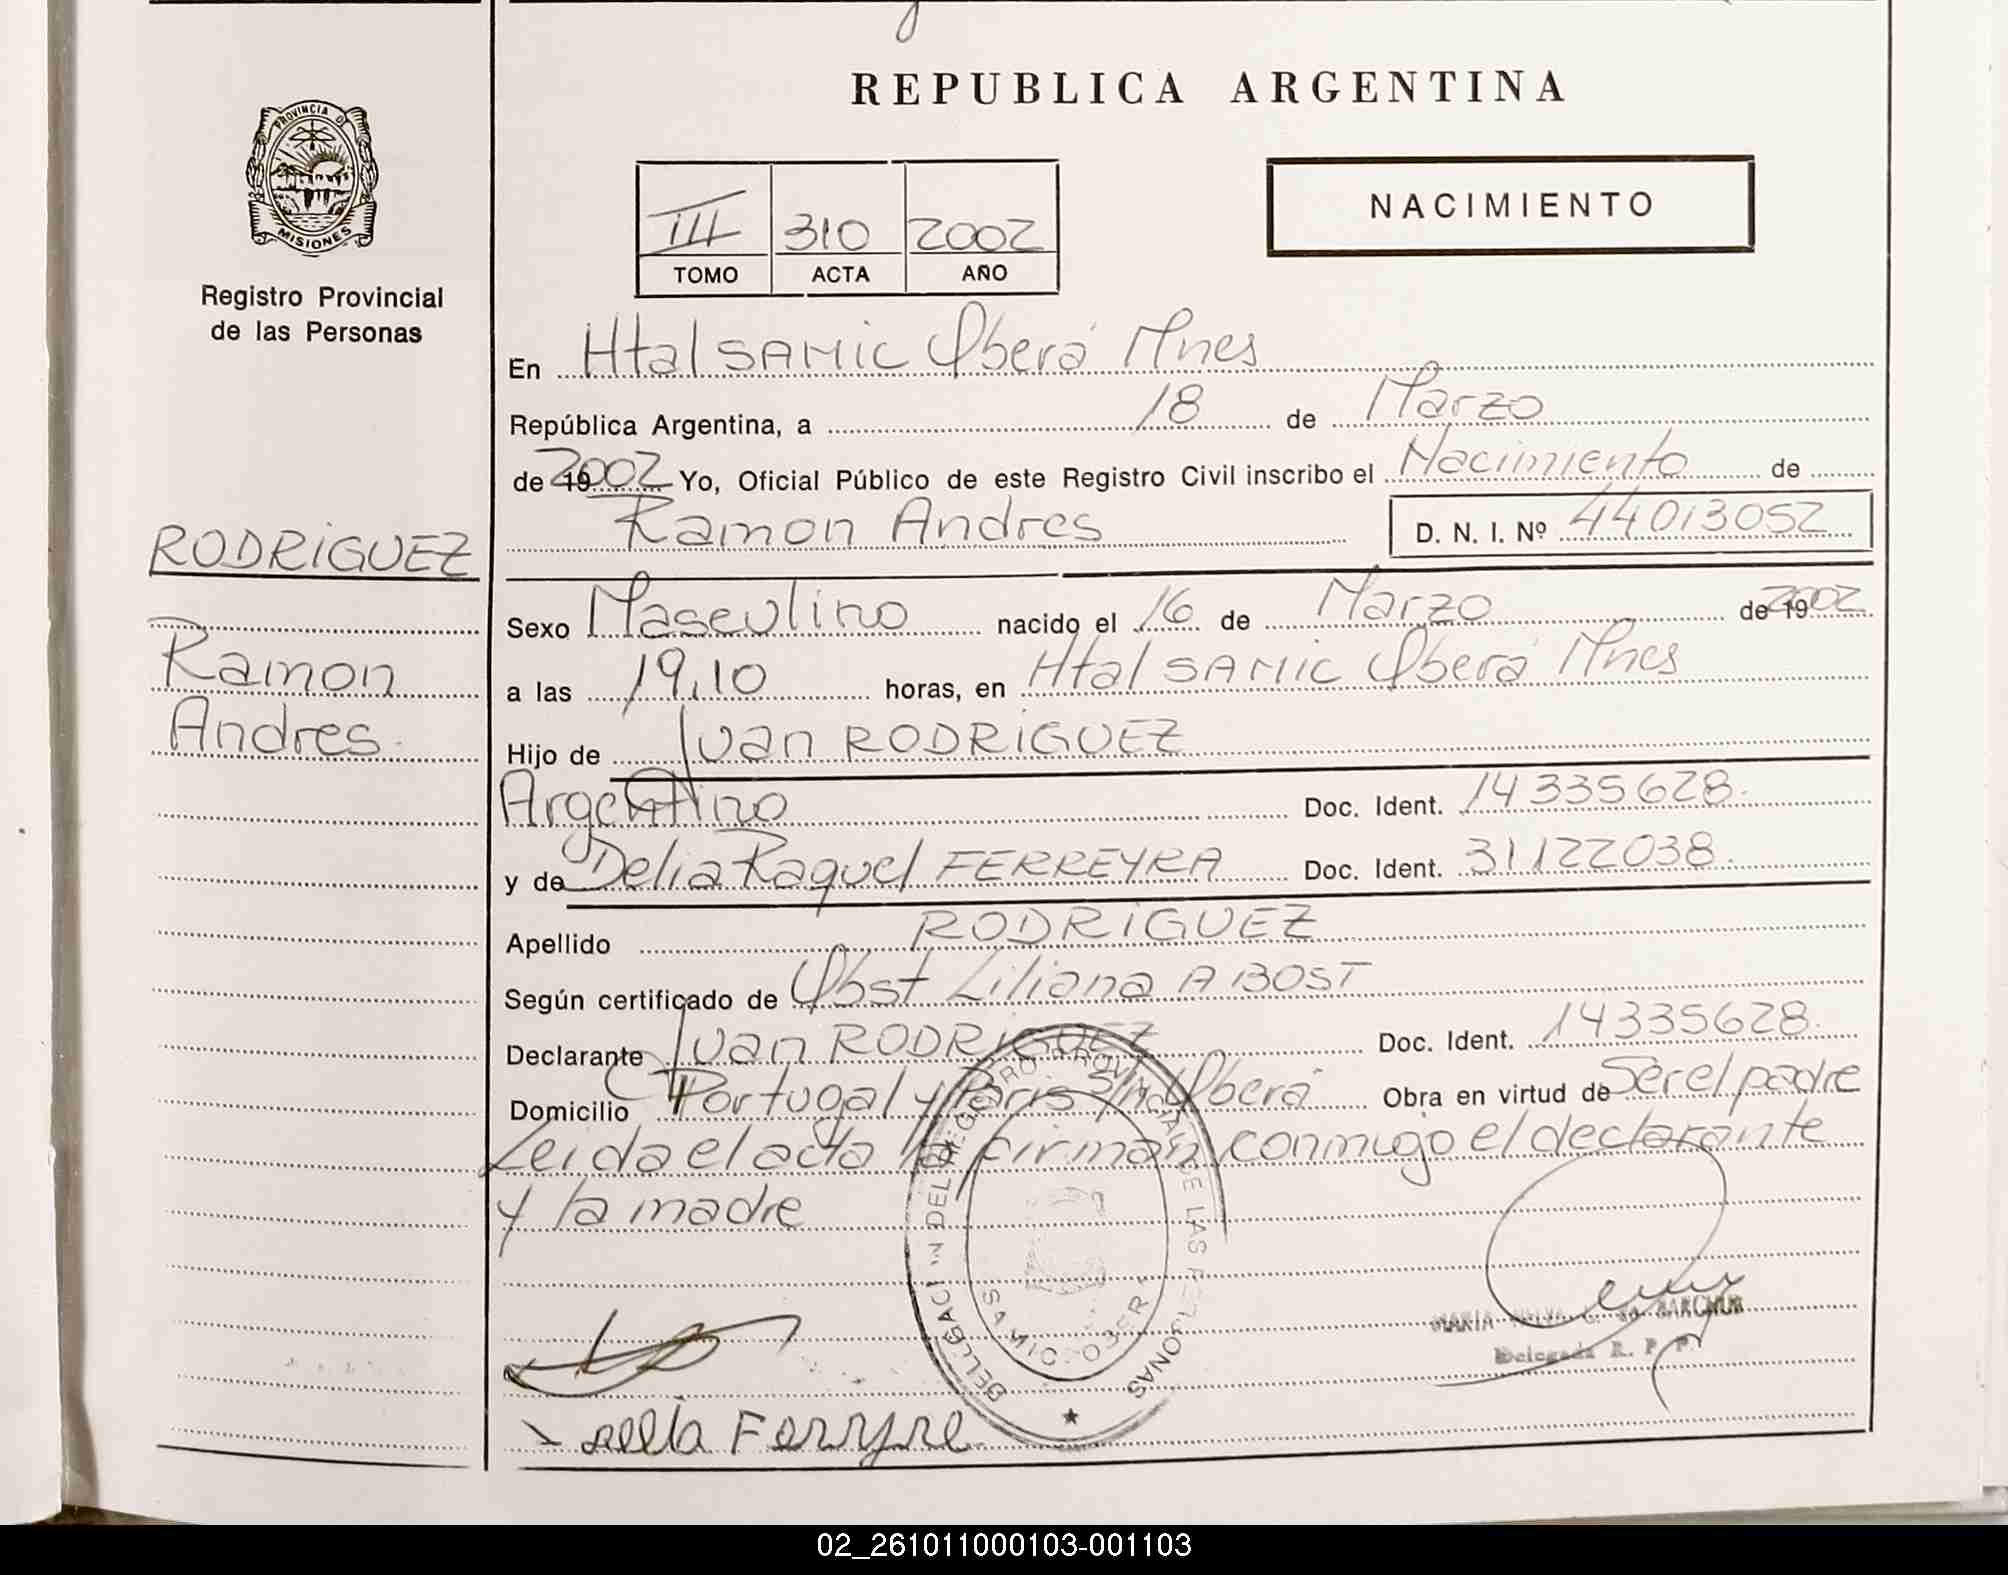 REPUBLICA ARGENTINA
PROVINCIA D
MISIONES
Registro Provincial
de las Personas
III 310 2002
TOMO ACTA AÑO
NACIMIENTO
En Htal SAMIC Oberá Mnes
República Argentina, a 18 de Marzo
de 19 2002 Yo, Oficial Público de este Registro Civil inscribo el Nacimiento de
Ramon Andres D. N. I. Nº 44013052
RODRIGUEZ
Ramon
Andres
Sexo Masculino nacido el 16 de Marzo de 19 2002
a las 19,10 horas, en Htal SAMIC Oberá Mnes
Hijo de Juan RODRIGUEZ
Argentino Doc. Ident. 14335628
y de Delia Raquel FERREYRA Doc. Ident. 31122038
Apellido RODRIGUEZ
Según certificado de Obst Liliana A BOST
Declarante Juan RODRIGUEZ Doc. Ident. 14335628
Domicilio Portugal y Paris S/n Oberá Obra en virtud de Ser el padre
Leida el acta la firman conmigo el declarante
y la madre
DEL REGISTRO PROVINCIAL DE LAS PERSONAS
SAMIC OBER
MARIA
Delegada R. P. P.
Ferryre
02_261011000103-001103